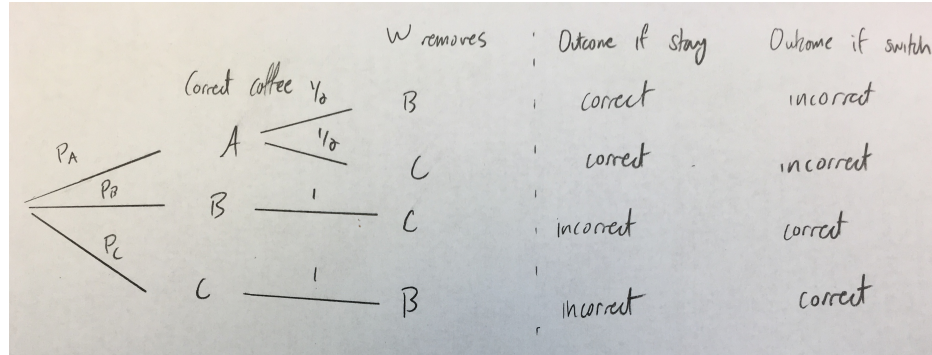 W removes Outcone if stay Outcome if switch
Correct coffee
1/2 B correct incorrect
PA A 1/2
C correct incorrect
PB B 1 C incorrect correct
PC C 1 B incorrect correct